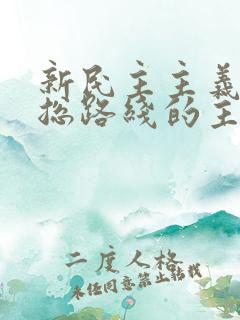 新民主主义
总路线的主
二度人格
未经同意禁止转载